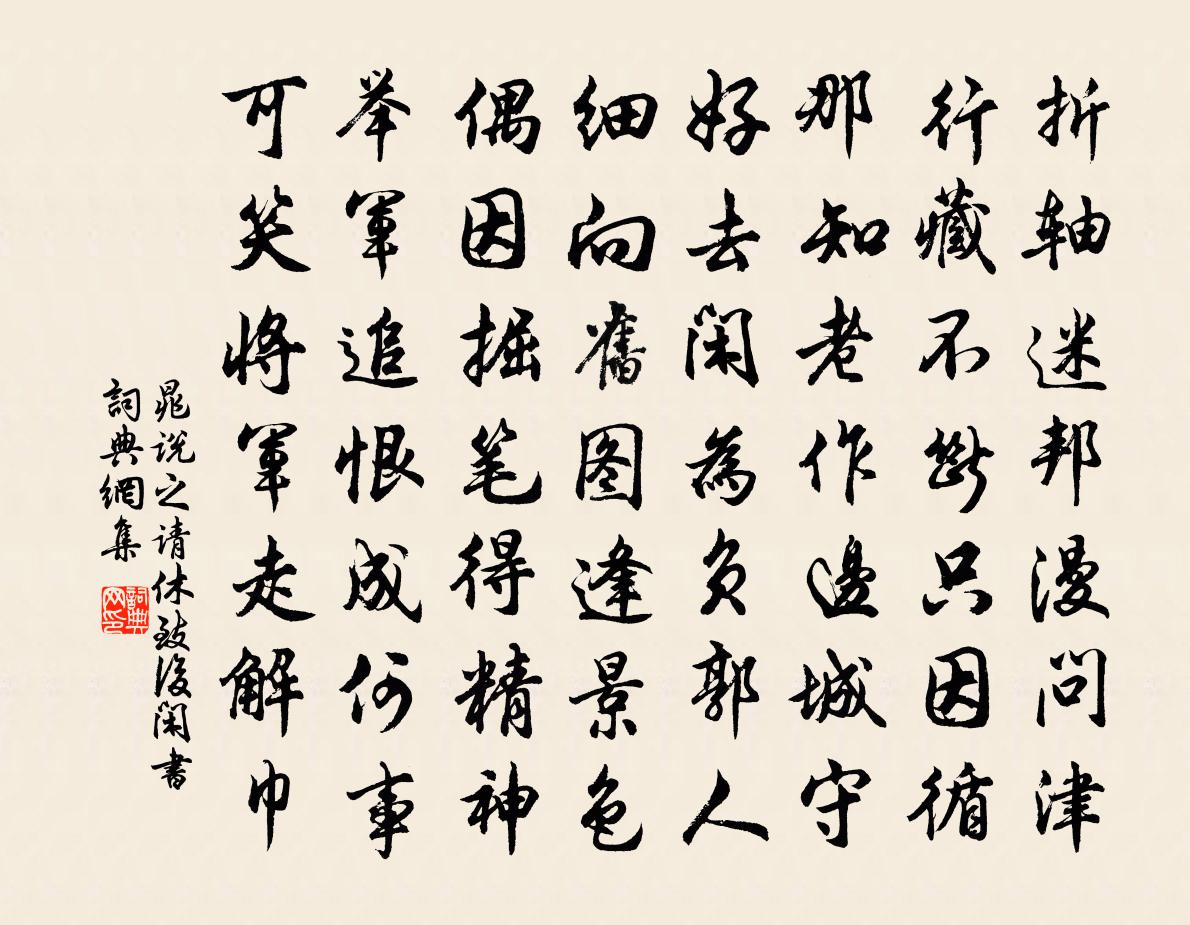 折轴迷邦漫问津
行藏不断只因循
那知老作邊城守
好去闲為负郭人
细向舊图逢景色
偶因掘笔得精神
举軍追恨成何事
可笑将軍走解巾
晁说之请休致後闲書
詞典網集
詞典网印